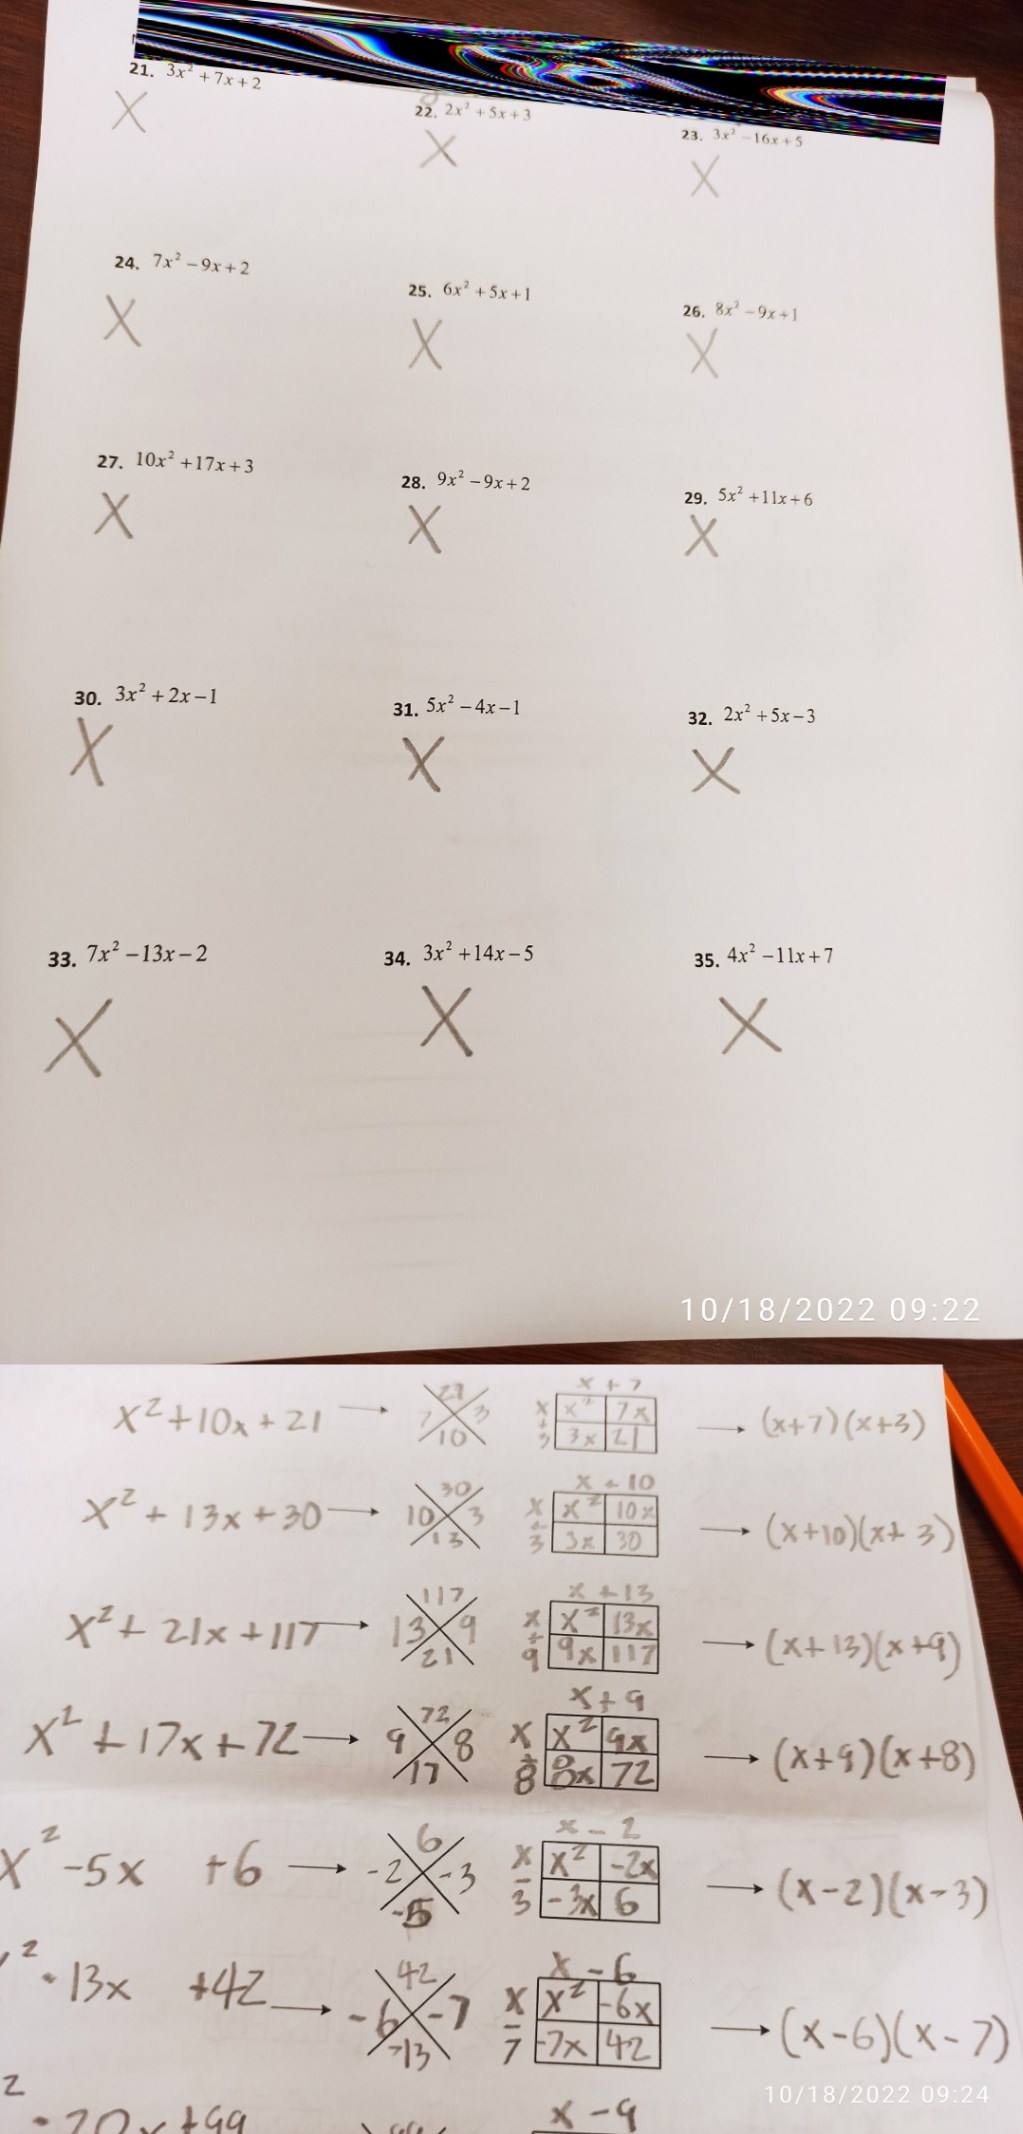 21. 3x² + 7x + 2
22. 2x² + 5x + 3
23. 3x² - 16x + 5
X X X
24. 7x² - 9x + 2
25. 6x² + 5x + 1
26. 8x² - 9x + 1
X X X
27. 10x² + 17x + 3
28. 9x² - 9x + 2
29. 5x² + 11x + 6
X X X
30. 3x² + 2x - 1
31. 5x² - 4x - 1
32. 2x² + 5x - 3
X X X
33. 7x² - 13x - 2
34. 3x² + 14x - 5
35. 4x² - 11x + 7
X X X
10/18/2022 09:22
x² + 10x + 21 → 21 7 3 10 x + 7 x + 3 x² 7x 3x 21 → (x+7)(x+3)
x² + 13x + 30 → 30 10 3 13 x + 10 x + 3 x² 10x 3x 30 → (x+10)(x+3)
x² + 21x + 117 → 117 13 9 21 x + 13 x + 9 x² 13x 9x 117 → (x+13)(x+9)
x² + 17x + 72 → 72 9 8 17 x + 9 x + 8 x² 9x 8x 72 → (x+9)(x+8)
x² - 5x + 6 → 6 -2 -3 -5 x - 2 x - 3 x² -2x -3x 6 → (x-2)(x-3)
² - 13x + 42 → 42 -6 -7 -13 x - 6 x - 7 x² -6x -7x 42 → (x-6)(x-7)
10/18/2022 09:24
² - 20x + 99 99 x - 9